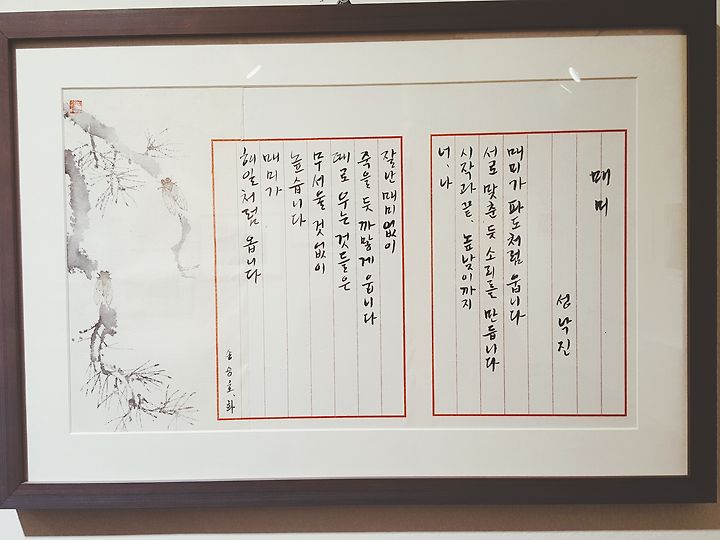 매미
성낙진
매미가 파도처럼 웁니다
서로 맞춘 듯 소리를 만듭니다
시작과 끝, 높낮이까지
너, 나
잘난 매미 없이
죽을 듯 까맣게 웁니다
떼로 우는 것들은
무서울 것 없이
높습니다
매미가
해일처럼 웁니다
송승호, 화